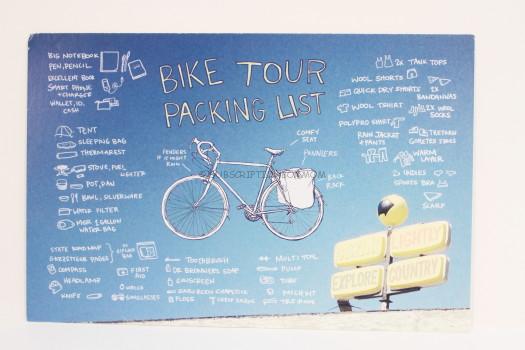 BIKE TOUR
PACKING LIST
BIG NOTEBOOK
PEN, PENCIL
EXCELLENT BOOK
SMART PHONE
+ CHARGER
WALLET, ID,
CASH
TENT
SLEEPING BAG
THERMAREST
STOVE, FUEL
LIGHTER
POT, PAN
BOWL, SILVERWARE
WATER FILTER
MSR 1 GALLON
WATER BAG
STATE ROAD MAP
GAZETTEER PAGES
IN ZIPLOC
BAG
COMPASS
HEADLAMP
KNIFE
FIRST
AID
SUNGLASSES
FENDERS
IF IT MIGHT
RAIN
COMFY
SEAT
PANNIERS
BACK
RACK
SUBSCRIPTIONISTMOM
TOOTHBRUSH
DR BRONNERS SOAP
SUNSCREEN
SUNSCREEN CHAPSTICK
FLOSS
MULTI TOOL
PUMP
TUBE
PATCH KIT
2x TANK TOPS
WOOL SHORTS
QUICK DRY SHORTS
2x
BANDANNAS
WOOL TSHIRT
2x WOOL
SOCKS
POLYPRO SHIRT
RAIN JACKET
+ PANTS
WARM
LAYER
UNDIES
SPORTS BRA
SCARF
LIGHTLY
EXPLORE
COUNTRY